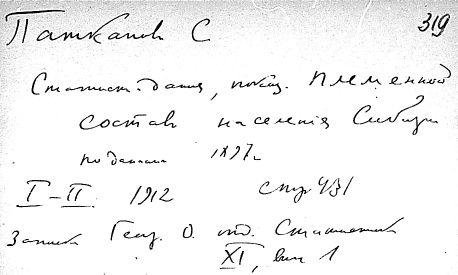 Патканов С 319
Статист. данныя, показ. племенной
состав населения Сибири
по данным 1897г.
I-II. 1912 стр 431
Записки Геогр. О. отд. Статистики
XI, вып 1